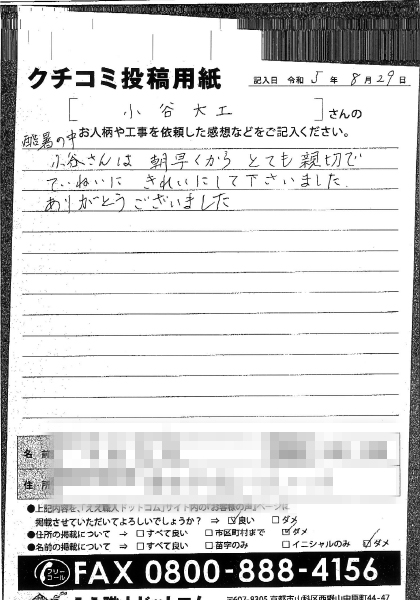 クチコミ投稿用紙
記入日 令和 5 年 8 月 29 日
[ 小谷大工 ] さんの
お人柄や工事を依頼した感想などをご記入ください。
酷暑の中
小谷さんは 朝早くから とても親切で
ていねいに きれいにして下さいました
ありがとうございました
名前
住所
●上記内容を、「ええ職人ドットコム」サイト内の「お客様の声」ページに
掲載させていただいてよろしいでしょうか? ⇒ ☑良い □ダメ
●住所の掲載について ⇒ □すべて良い □市区町村まで ☑ダメ
●名前の掲載について ⇒ □すべて良い □苗字のみ □イニシャルのみ ☑ダメ
フリーコール FAX 0800-888-4156
ええ職人ドットコム 〒607-8305 京都市山科区西野山中鳥町44-47